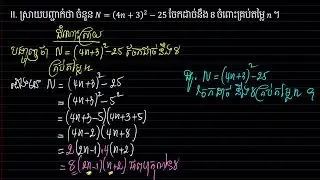 II. ស្រាយបញ្ជាក់ថា ចំនួន N = (4n + 3)² − 25 ចែកដាច់នឹង 8 ចំពោះគ្រប់តម្លៃ n ។
ដំណោះស្រាយ
បង្ហាញថា N = (4n+3)²-25 ចែកដាច់ នឹង 8
គ្រប់តម្លៃ n
យើងមាន N = (4n+3)²-25
= (4n+3)²-5²
= (4n+3-5)(4n+3+5)
= (4n-2)(4n+8)
= 2(2n-1).4(n+2)
= 8(2n-1)(n+2)
ដូ. N = (4n+3)²-25
ចែកដាច់ នឹង 8 គ្រប់តម្លៃ n ។